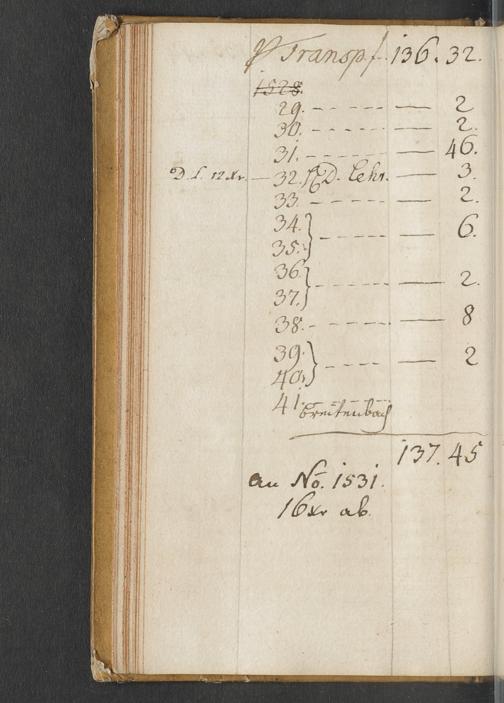 Transp. 136. 32.
1528.
29. — — — — — 2
30. — — — — — 2.
31. — — — — — 46.
D. L. 12 xr. — 32. NB. Lehr. — 3.
33. — — — — — 2.
34.
35. } — — — — — 6.
36.
37. } — — — — — 2.
38. — — — — — 8
39.
40. } — — — — — 2
41. Breitenbach
137. 45
an No. 1531.
16 xr ab.